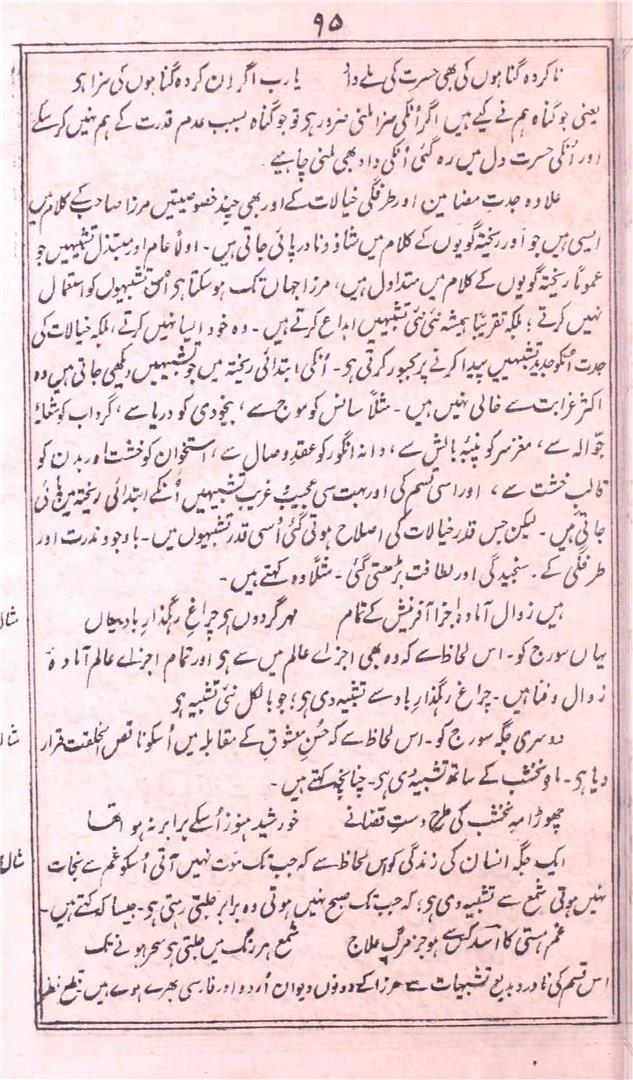 ۹۵
ناکردہ گناہوں کی بھی حسرت کی ملے داد یا رب اگر ان کردہ گناہوں کی سزا ہی
یعنی جو گناہ ہم نے کیے ہیں اگر اُنکی سزا ملنی ضرور ہی تو جو گناہ بسبب عدم قدرت کے ہم نہیں کر سکے
اور اُنکی حسرت دل میں رہ گئی اُنکی داد بھی ملنی چاہیے
علاوہ جدتِ مضامین اور طرفگی خیالات کے اور بھی چند خصوصیتیں مرزا صاحب کے کلام میں
ایسی ہیں جو اَور ریختہ گویوں کے کلام میں شاذ و نادر پائی جاتی ہیں۔ اولاً عام اور مبتذل تشبیہیں جو
عموماً ریختہ گویوں کے کلام میں متداول ہیں، مرزا جہاں تک ہو سکتا ہی اُن تشبیہوں کو استعمال
نہیں کرتے؛ بلکہ تقریباً ہمیشہ نئی نئی تشبیہیں ابداع کرتے ہیں۔ وہ خود ایسا نہیں کرتے، بلکہ خیالات کی
جدت اُنکو جدید تشبیہیں پیدا کرنے پر مجبور کرتی ہی۔ اُنکی ابتدائی ریختہ میں جو تشبیہیں دیکھی جاتی ہیں وہ
اکثر غرابت سے خالی نہیں ہیں۔ مثلاً سانس کو موج سے، بیخودی کو دریا سے، گرداب کو شعلۂ
جوّالہ سے، مغزِ سر کو پنبۂ بالش سے، دانۂ انگور کو عقدِ وصال سے، استخوان کو خشت اور بدن کو
قالبِ خشت سے، اور اسی قسم کی اور بہت سی عجیب و غریب تشبیہیں اُنکے ابتدائی ریختہ میں پائی
جاتی ہیں۔ لیکن جس قدر خیالات کی اصلاح ہوتی گئی اُسی قدر تشبیہوں میں۔ باوجود ندرت اور
طرفگی کے۔ سنجیدگی اور لطافت بڑھتی گئی۔ مثلاً وہ کہتے ہیں۔
ہیں زوال آمادہ اجزا آفرینش کے تمام مہرِ گردوں ہی چراغِ رہگذارِ باد یہاں
یہاں سورج کو۔ اس لحاظ سے کہ وہ بھی اجزاے عالم میں سے ہی اور تمام اجزاے عالم آمادۂ
زوال و فنا ہیں۔ چراغِ رہگذارِ باد سے تشبیہ دی ہی؛ جو بالکل نئی تشبیہ ہی
دوسری جگہ سورج کو۔ اس لحاظ سے کہ حُسنِ معشوق کے مقابلہ میں اُسکو ناقص الخلقت قرار
دیا ہی۔ ماہِ نخشب کے ساتھ تشبیہ دی ہی۔ چنانچہ کہتے ہیں۔
چھوڑا مہِ نخشب کی طرح دستِ قضا نے خورشید ہنوز اُسکے برابر نہ ہوا تھا
ایک جگہ انسان کی زندگی کو اس لحاظ سے کہ جب تک موت نہیں آتی اُسکو غم سے نجات
نہیں ہوتی شمع سے تشبیہ دی ہی؛ کہ جب تک صبح نہیں ہوتی وہ برابر جلتی رہتی ہی۔ جیسا کہ کہتے ہیں۔
غم ہستی کا اسد کس سے ہو جز مرگ علاج شمع ہر رنگ میں جلتی ہی سحر ہونے تک
اس قسم کی نادر و بدیع تشبیہات سے مرزا کے دونوں دیوان اُردو اور فارسی بھرے ہوے ہیں قطع نظر